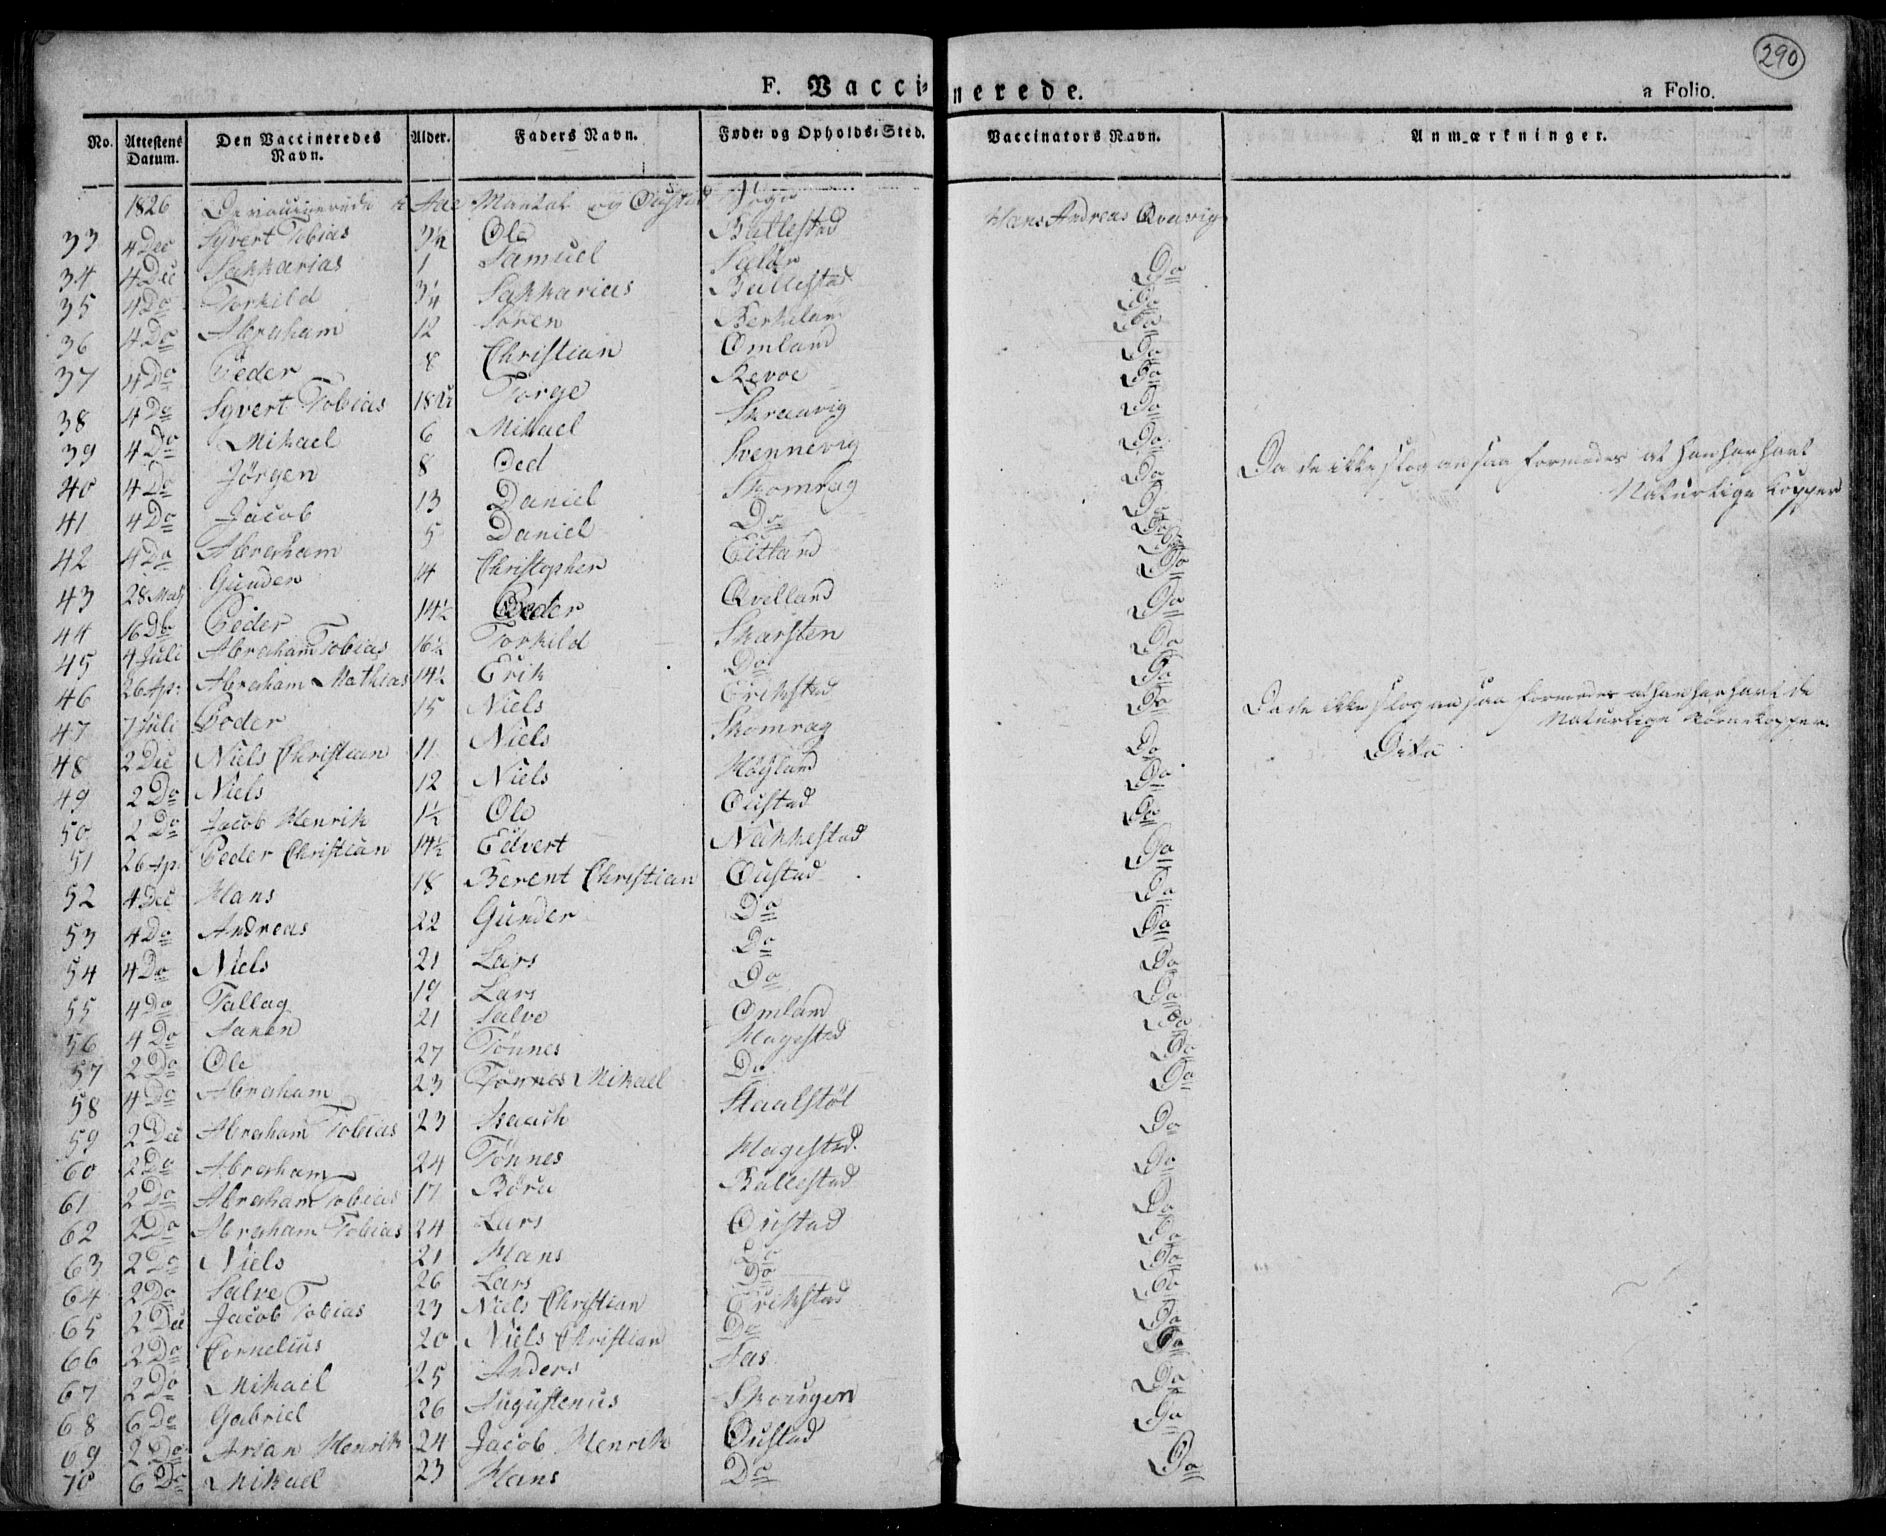 290
F. Vaccinerede. a Folio.
No. Attestens Datum. Den Vaccineredes Navn. Alder. Faders Navn. Føde: og Opholds: Sted. Vaccinators Navn. Anmærkninger.
1826 De vaccinerede
33 4 Dec Syvert Tobias 3½ Ole Ballestad Hans Andreas Qvavig
34 4 Dec Sakkarias 1 Samuel Do
35 4 Do Torkild 3¼ Sakkarias Ballestad Do
36 4 Do Abraham 12 Søren Berkeland Do
37 4 Do Peder 8 Christian Omland Do
38 4 Do Syvert Tobias Torge Revoe Do
39 4 Do Mikael 6 Mikael Skraavig Do
40 4 Do Jørgen 8 Ded Svennevig Do Da de ikke slog an saa formodes at han har havt Naturlige Kopper
41 4 Do Jacob 13 Daniel Skomrag Do
42 4 Do Abraham 5 Daniel Do Do
43 28 Gunder 14 Christopher Eitland Do
44 16 Do Peder 14½ Peder Qvelland Do
45 4 Juli Abraham Tobias 16½ Torkild Skarsten Do
46 26 Ap: Abraham Mathias 14½ Erik Do Do
47 7 Juli Peder 15 Niels Erikstad Do Da de ikke slog an saa formodes at han har havt de Naturlige Børnekopper.
48 2 Dec Niels Christian 11 Niels Skomrag Do Dito
49 2 Do Niels 12 Niels Høyland Do
50 2 Do Jacob Henrik 1½ Ole Oustad Do
51 26 Ap. Peder Christian 14½ Edvert Nakkestad Do
52 4 Dec Hans 18 Berent Christian Oustad Do
53 4 Do Andreas 22 Gunder Do Do
54 4 Do Niels 21 Lars Do Do
55 4 Do Tallag 19 Lars Do Do
56 4 Do Janen 21 Salve Omland Do
57 2 Do Ole 27 Tønnes Hagestad Do
58 4 Do Abraham 23 Tønnes Mikael Do Do
59 2 Dec Abraham Tobias 23 Isaach Staalstøl Do
60 2 Do Abraham 24 Tønnes Hagestad. Do
61 2 Do Abraham Tobias 17 Børu Ballestad Do
62 2 Do Abraham Tobias 24 Lars Oustad Do
63 2 Do Niels 21 Hans Do Do
64 2 Do Salve 26 Lars Do Do
65 2 Dec Jacob Tobias 23 Niels Christian Erikstad Do
66 2 Do Cornelius 20 Niels Christian Do Do
67 2 Do Mikael 25 Anders Aas Do
68 6 Do Gabriel 26 Augustenus Skougen Do
69 2 Do Arian Henrik 24 Jacob Henrik Oustad Do
70 6 Do Mikael 23 Hans Do